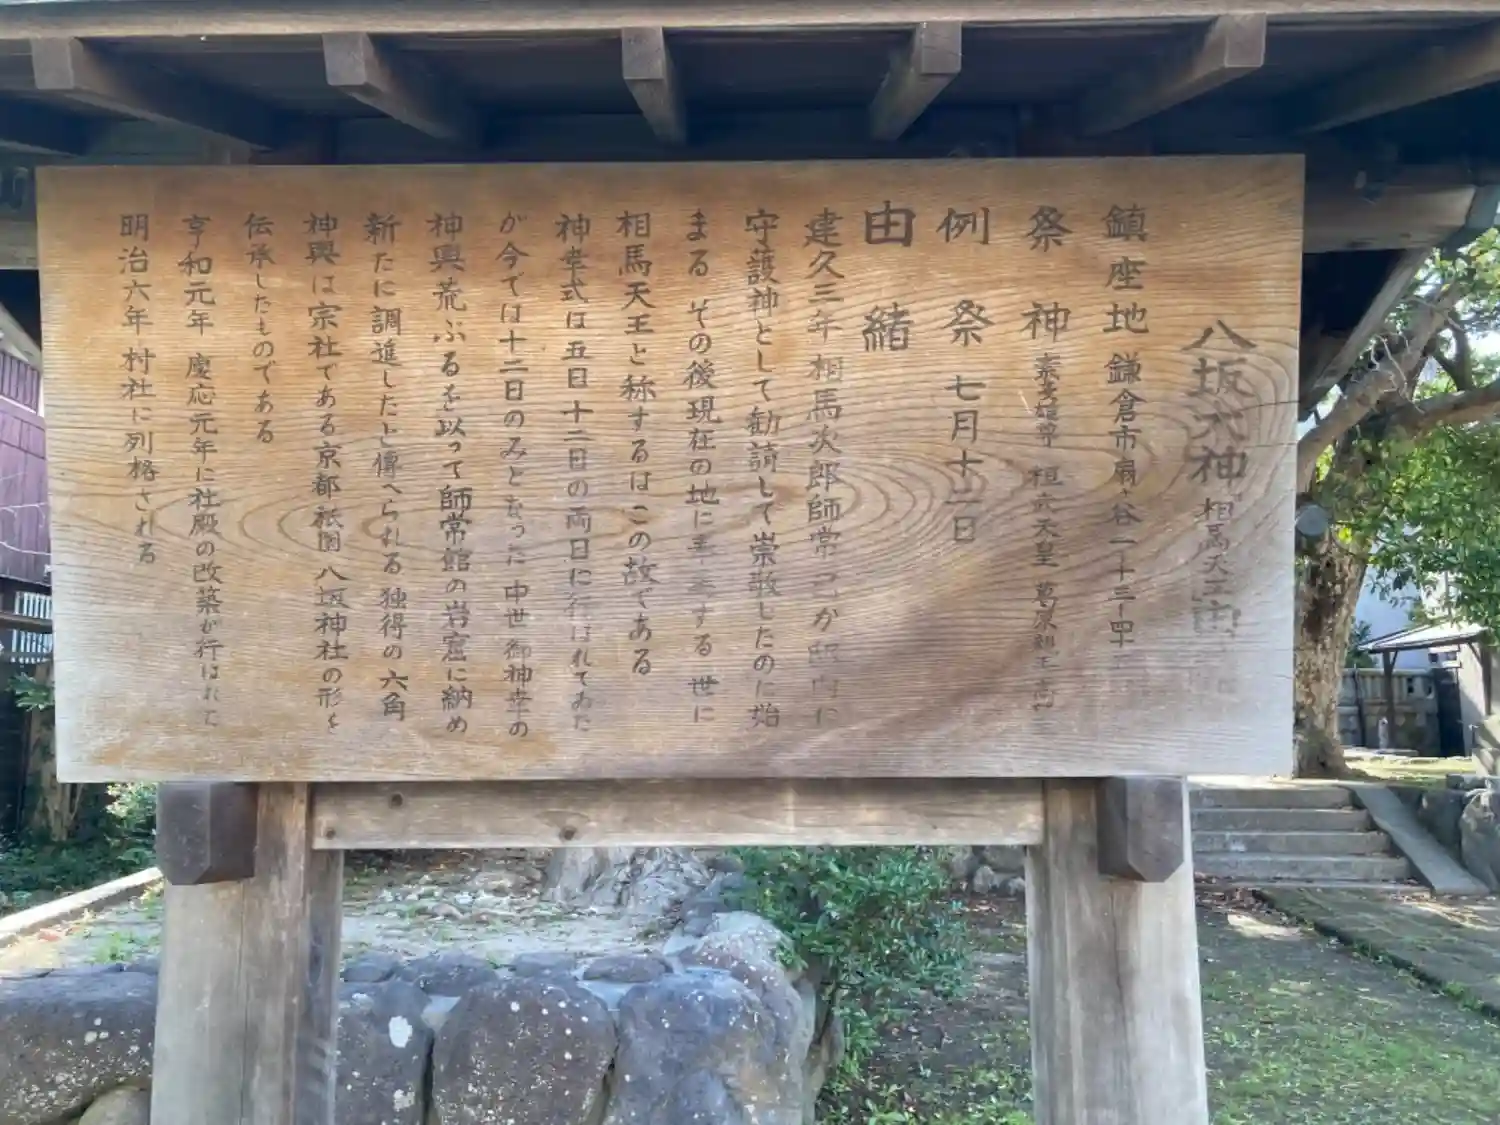 八坂大神「相馬天王由
鎮座地 鎌倉市扇ヶ谷一ー十三ー四十五
祭神 素戔雄尊 桓武天皇 葛原親王 高
例祭 七月十二日
由緒
建久三年 相馬次郎師常 己が邸内に
守護神として勧請して崇敬したのに始
まる その後現在の地に奉遷する 世に
相馬天王と称するは この故である
神幸式は五日十二日の両日に行はれてゐた
が今では十二日のみとなった 中世 御神幸の
神輿荒ぶるを以って師常館の岩窟に納め
新たに調進したと傳へられる 独得の六角
神輿は宗社である京都祇園 八坂神社の形を
伝承したものである
享和元年 慶応元年に社殿の改築が行はれて
明治六年 村社に列格される